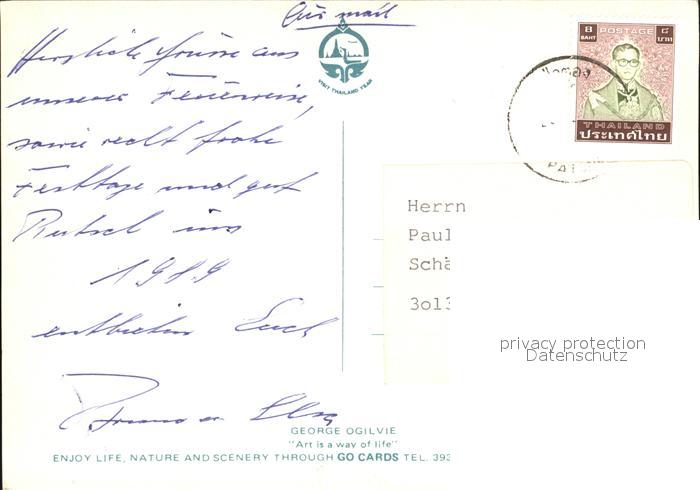 Air mail
Herzliche Grüsse aus
unserer Ferienreise,
sowie recht frohe
Festtage und gut
Rutsch ins
1989
entbieten Euch
VISIT THAILAND YEAR
8 BAHT
POSTAGE
๘ บาท
THAILAND
ประเทศไทย
Herrn
Paul
Schä
3o13
privacy protection
Datenschutz
GEORGE OGILVIE
"Art is a way of life"
ENJOY LIFE, NATURE AND SCENERY THROUGH GO CARDS TEL. 393